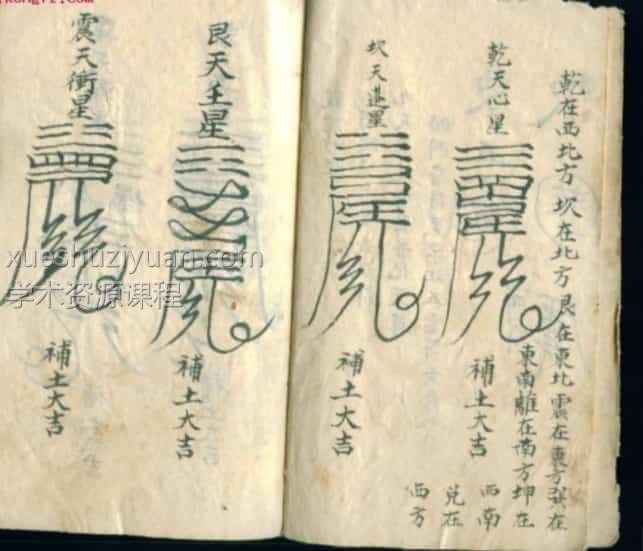 乾在西北方 坎在北方艮在東北震在東方巽在
東南離在南方坤在
西南
兌在
西方
乾天心星
補土大吉
坎天蓬星
補土大吉
艮天壬星
補土大吉
震天衝星
補土大吉
xueshuziyuan.com
学术资源课程